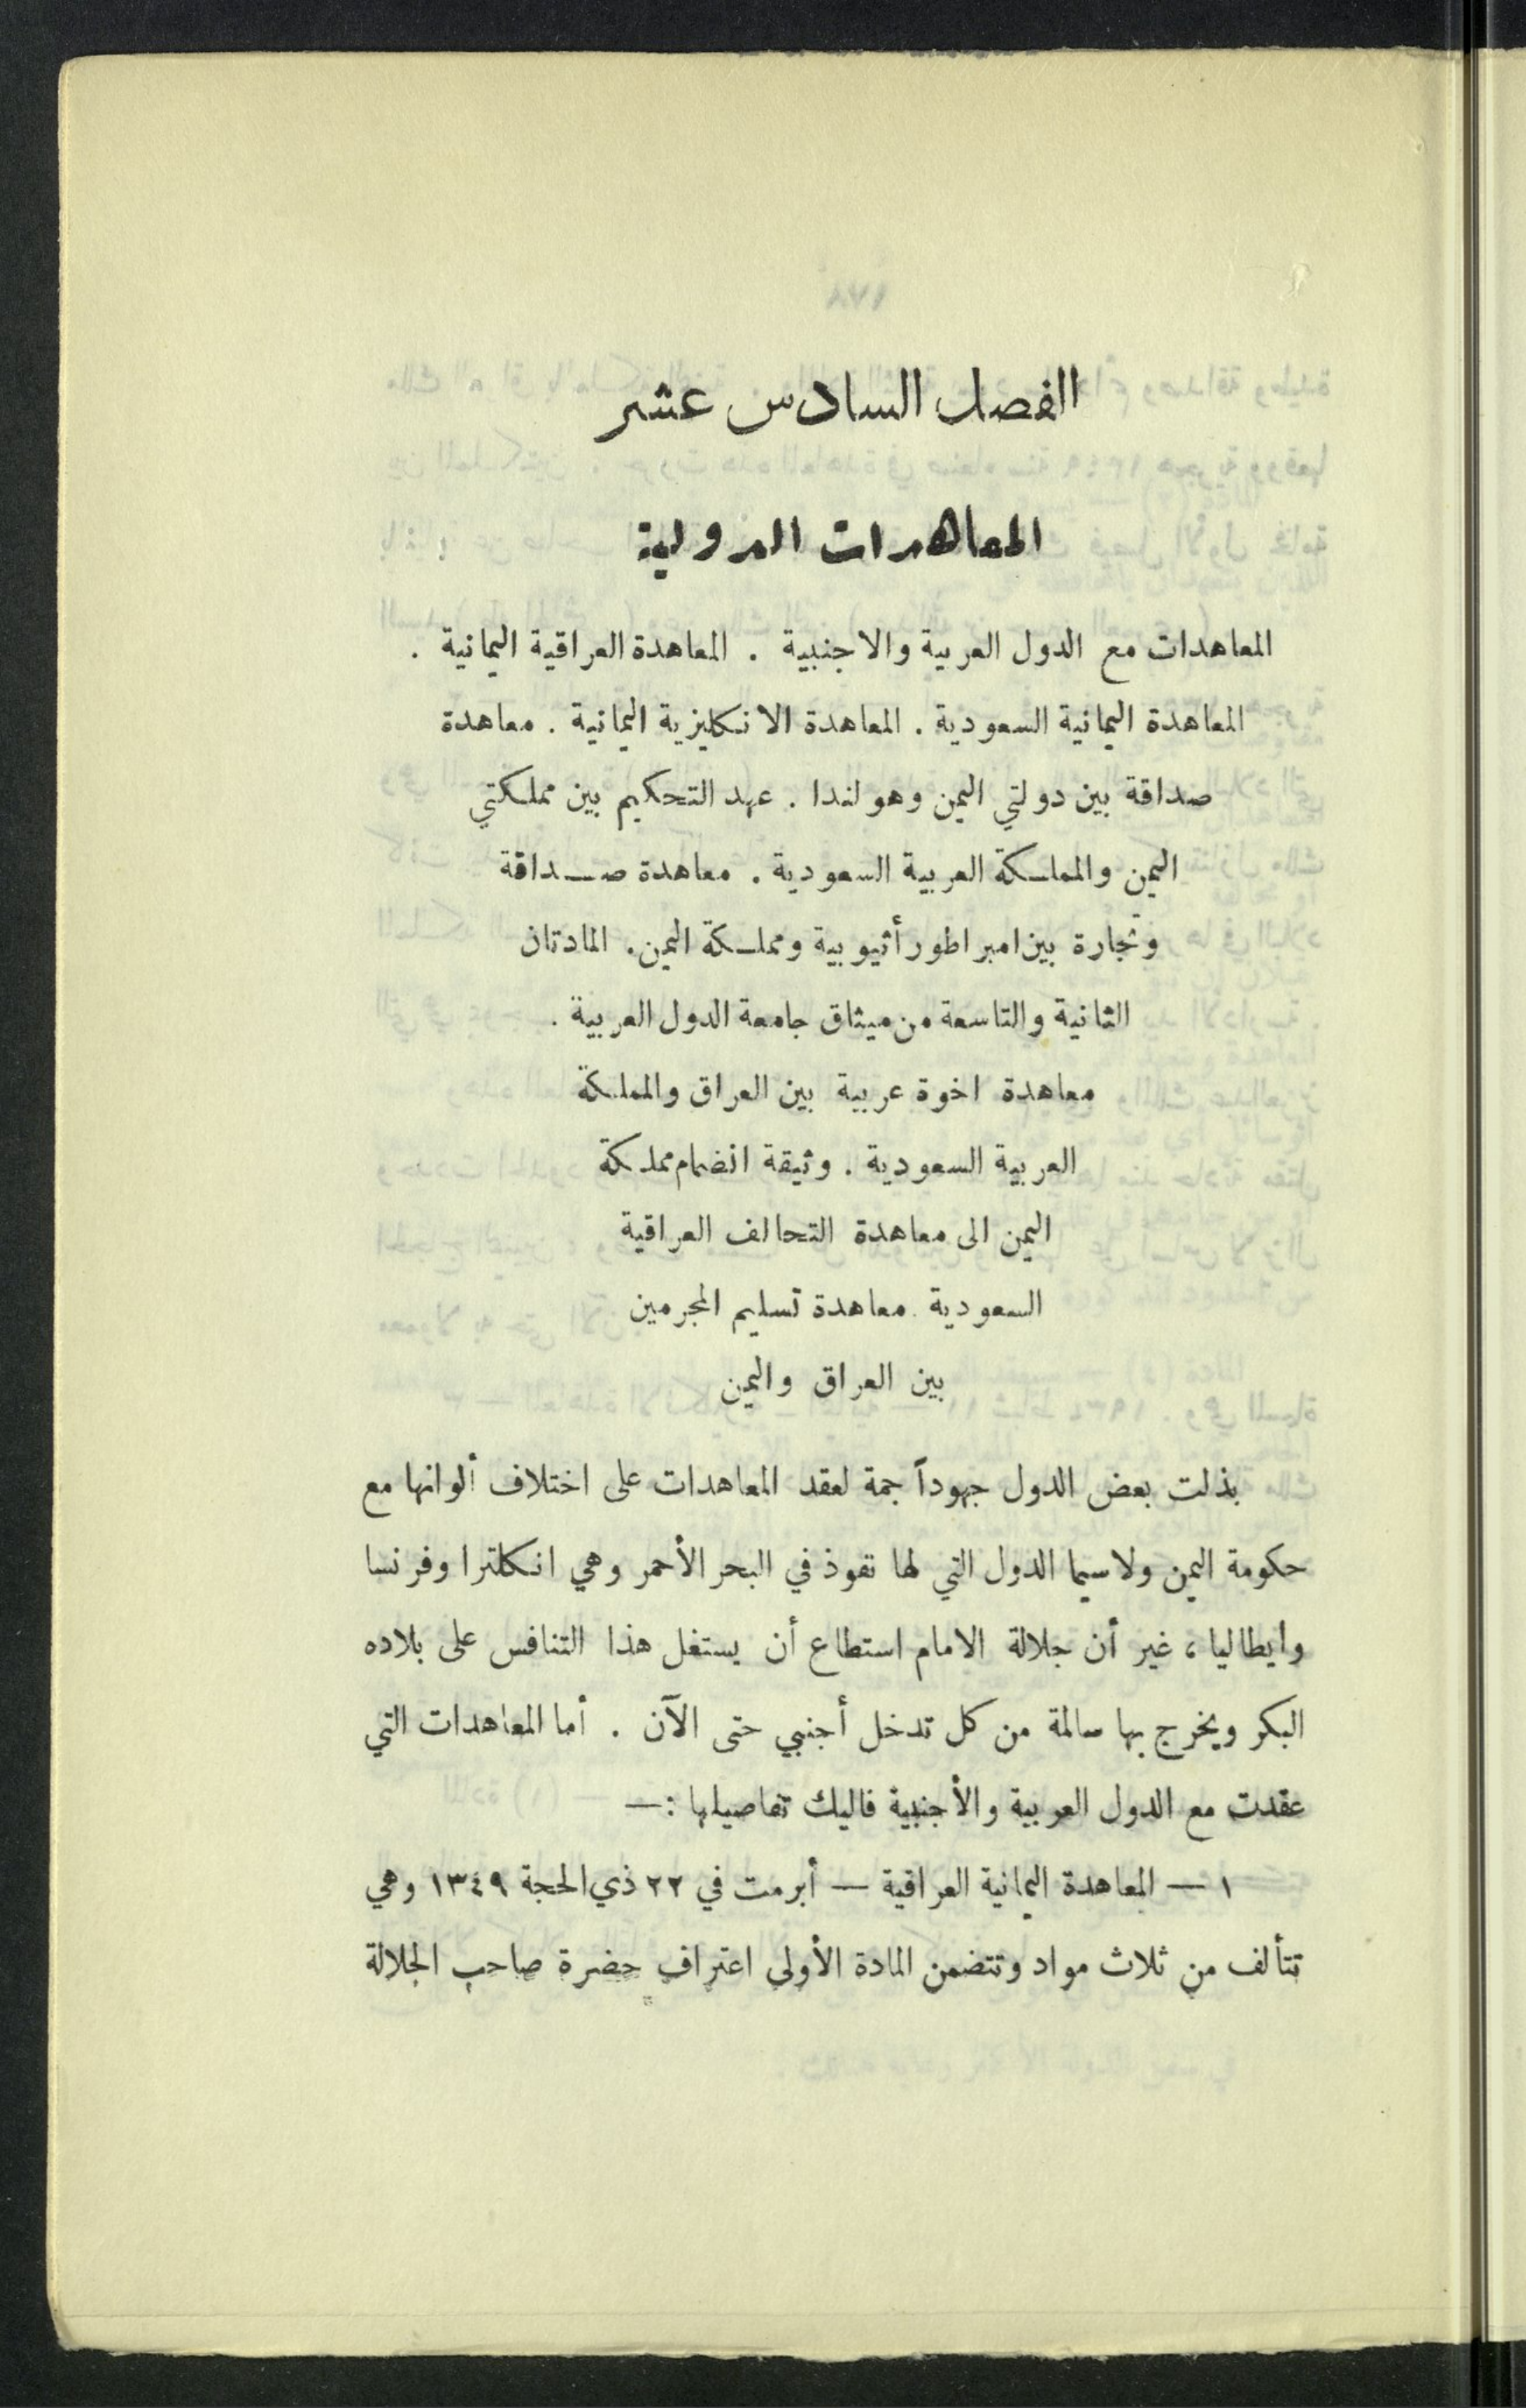 الفصل السادس عشر
المعاهدات الدولية
المعاهدات مع الدول العربية والاجنبية . المعاهدة العراقية اليمانية .
المعاهدة اليمانية السعودية . المعاهدة الانكليزية اليمانية . معاهدة
صداقة بين دولتي اليمن وهولندا . عهد التحكيم بين مملكتي
اليمن والمملكة العربية السعودية . معاهدة صـداقة
وتجارة بين امبراطور أثيوبية ومملكة اليمن . المادتان
الثانية والتاسعة من ميثاق جامعة الدول العربية .
معاهدة اخوة عربية بين العراق والمملكة
العربية السعودية . وثيقة انضمام مملكة
اليمن الى معاهدة التحالف العراقية
السعودية . معاهدة تسليم المجرمين
بين العراق واليمن
بذلت بعض الدول جهوداً جمة لعقد المعاهدات على اختلاف ألوانها مع
حكومة اليمن ولاسيما الدول التي لها نفوذ في البحر الأحمر وهي انكلترا وفرنسا
وايطاليا ، غير أن جلالة الامام استطاع أن يستغل هذا التنافس على بلاده
البكر ويخرج بها سالمة من كل تدخل أجنبي حتى الآن . أما المعاهدات التي
عقدت مع الدول العربية والأجنبية فاليك تفاصيلها :—
١ — المعاهدة اليمانية العراقية — أبرمت في ٢٢ ذي الحجة ١٣٤٩ وهي
تتألف من ثلاث مواد وتتضمن المادة الأولى اعتراف حضرة صاحب الجلالة